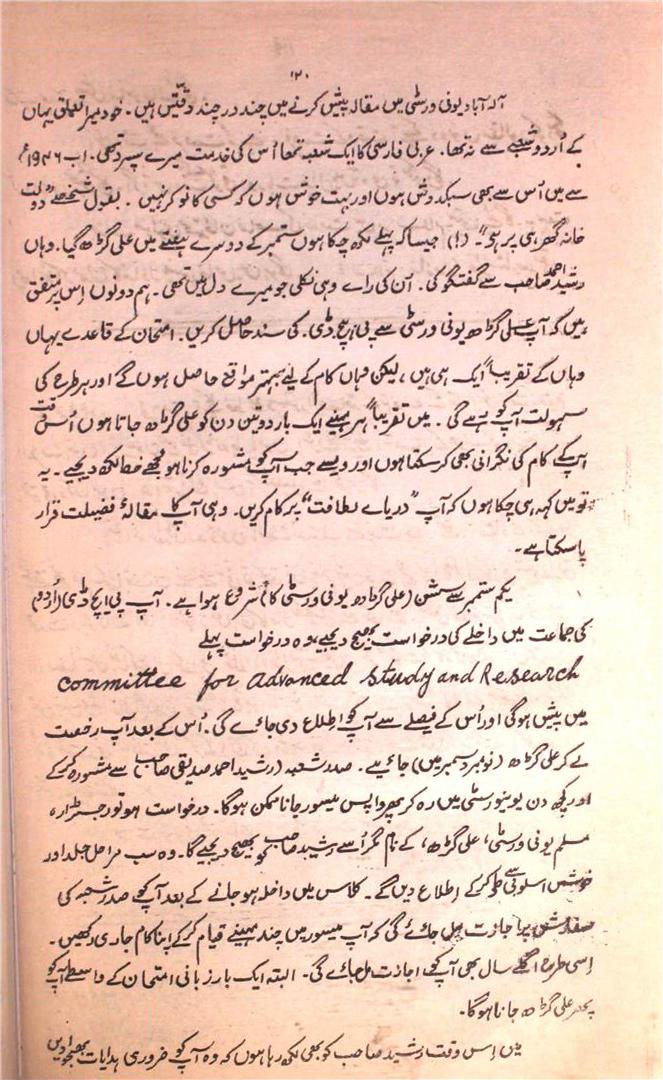 ۱۲۰
آلہ آباد یونی ورسٹی میں مقالہ پیش کرنے میں چند در چند دقّتیں ہیں۔ خود میرا تعلق یہاں
کے اُردو شعبے سے نہ تھا۔ عربی فارسی کا ایک شعبہ تھا اُس کی خدمت میرے سپرد تھی۔ اب ۱۹۴۶ء
سے میں اُس سے بھی سبکدوش ہوں اور بہت خوش ہوں کہ کسی کا نوکر نہیں۔ بقول شخصے "دولت
خانہ گھر ہی پر ہے"۔ (!) جیسا کہ پہلے لکھ چکا ہوں ستمبر کے دوسرے ہفتے میں علی گڑھ گیا۔ وہاں
رشید احمد صاحب سے گفتگو کی۔ اُن کی رائے وہی نکلی جو میرے دل میں تھی۔ ہم دونوں اِس پر متفق
ہیں کہ آپ علی گڑھ یونی ورسٹی سے پی ایچ ڈی۔ کی سند حاصل کریں۔ امتحان کے قاعدے یہاں
وہاں کے تقریباً ایک ہی ہیں، لیکن وہاں کام کے لیے بہتر مواقع حاصل ہوں گے اور ہر طرح کی
سہولت آپ کو رہے گی۔ میں تقریباً ہر مہینے ایک بار دو تین دن کو علی گڑھ جاتا ہوں اُس وقت
آپ کے کام کی نگرانی بھی کر سکتا ہوں اور ویسے جب آپ کو مشورہ کرنا ہو مجھے خط لکھ دیجیے۔ یہ
تو میں کہہ ہی چکا ہوں کہ آپ "دریاے لطافت" پر کام کریں۔ وہی آپ کا مقالۂ فضیلت قرار
پا سکتا ہے۔
یکم ستمبر سے سشن (علی گڑھ یونی ورسٹی کا) شروع ہوا ہے۔ آپ پی ایچ ڈی (اُردو)
کی جماعت میں داخلے کی درخواست بھیج دیجیے، وہ درخواست پہلے
Committee for Advanced Study and Research
میں پیش ہوگی اور اُس کے فیصلے سے آپ کو اطلاع دی جائے گی۔ اُس کے بعد آپ رخصت
لے کر علی گڑھ (نومبر دسمبر میں) جائیے۔ صدر شعبہ (رشید احمد صدیقی صاحب) سے مشورہ کر کے
اور کچھ دن یونیورسٹی میں رہ کر پھر واپس میسور جانا ممکن ہوگا۔ درخواست ہو تو رجسٹرار،
مسلم یونی ورسٹی، علی گڑھ، کے نام مگر اُسے رشید صاحب کو بھیج دیجیے گا۔ وہ سب مراحل جلد اور
خوش اسلوبی سے طے کر کے اطلاع دیں گے۔ کلاس میں داخلہ ہو جانے کے بعد آپ کو صدر شعبہ کی
سفارش پر اجازت مل جائے گی کہ آپ میسور میں چند مہینے قیام کر کے اپنا کام جاری رکھیں۔
اِسی طرح اگلے سال بھی آپ کو اجازت مل جائے گی۔ البتہ ایک بار زبانی امتحان کے واسطے آپ کو
پھر علی گڑھ جانا ہوگا۔
میں اِس وقت رشید صاحب کو بھی لکھ رہا ہوں کہ وہ آپ کو ضروری ہدایات بھجوا دیں